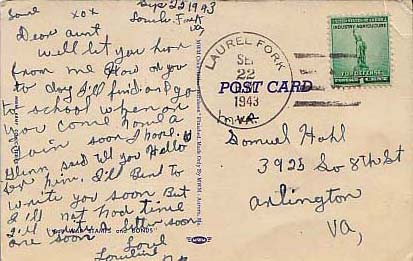 Sep 22 1943
Laurel Fork
Love xox
Dear aunt
well let you hear
from me How are you
to day I'll find and go
to school when are
you come home a
ain soon I hope.
Glenn said tell you Hello
for him. I'll send to
write you soon But
I'll not had time
I'll write a letter soon
are soon
Love
LAUREL FORK
SEP
22
1943
VA.
POST CARD
UNITED STATES OF AMERICA
INDUSTRY AGRICULTURE
FOR DEFENSE
1 CENT
Samuel Hohl
3925 So 8th St
Arlington
VA,
BUY WAR STAMPS and BONDS